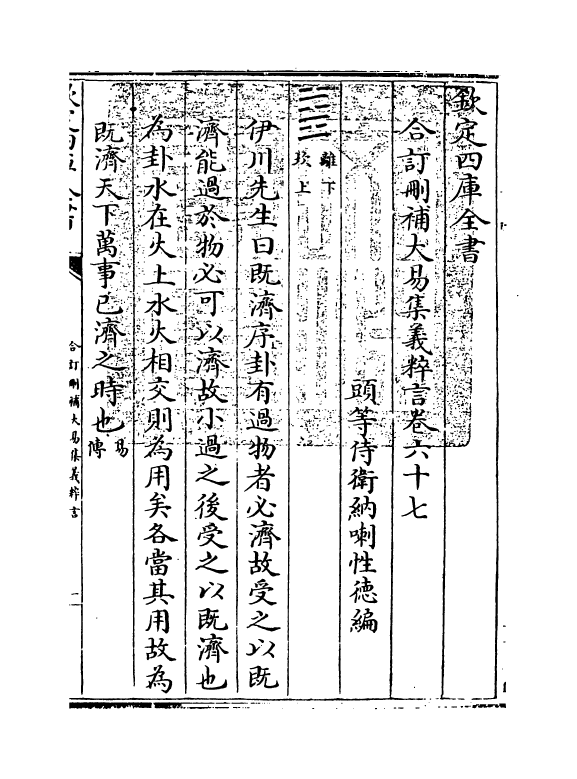 欽定四庫全書
合訂刪補大易集義粹言卷六十七
頭等侍衛納喇性德編
離下
坎上
伊川先生曰既濟序卦有過物者必濟故受之以既
濟能過於物必可以濟故小過之後受之以既濟也
為卦水在火上水火相交則為用矣各當其用故為
既濟天下萬事已濟之時也易
傳
合訂刪補大易集義粹言